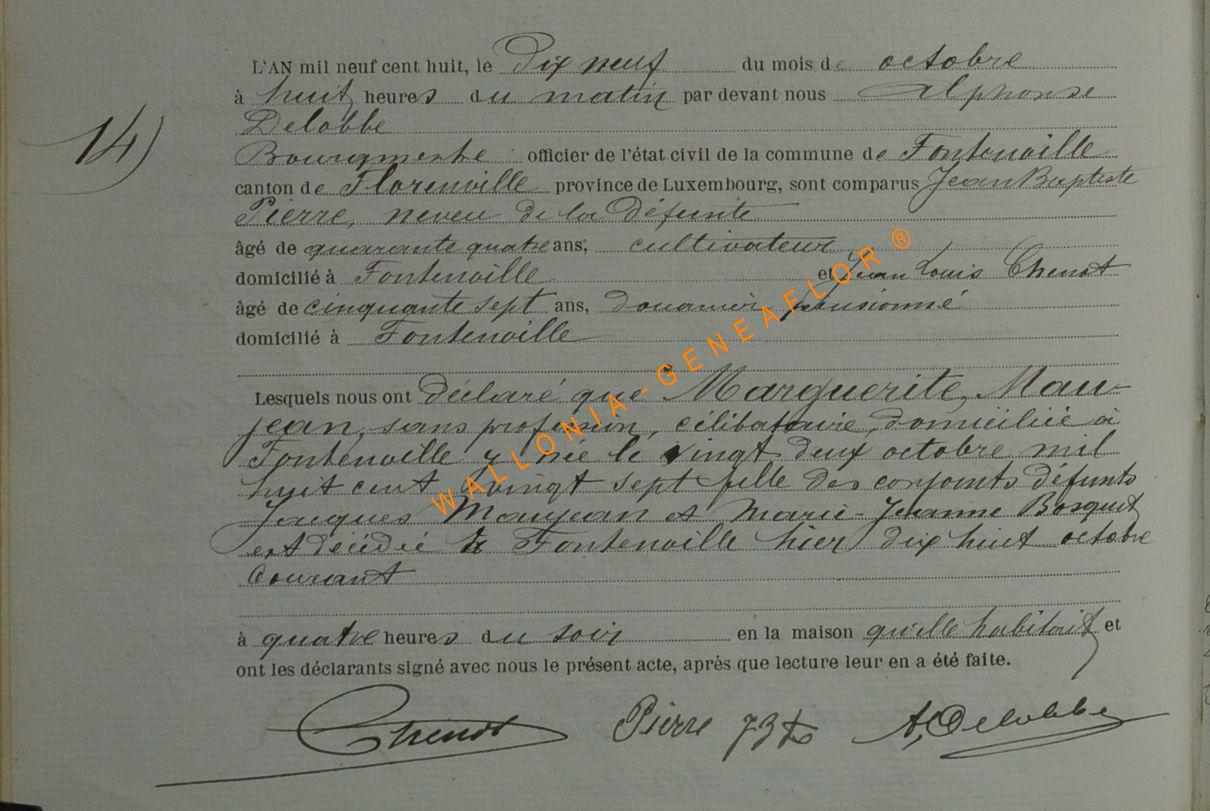 L'AN mil neuf cent huit, le Dix neuf du mois de octobre
à huit heures du matin par devant nous Alphonse
Delobbe
14)
Bourgmestre officier de l'état civil de la commune de Fontenoille
canton de Florenville province de Luxembourg, sont comparus Jean Baptiste
Pierre, neveu de la Défunte
âgé de quarante quatre ans, cultivateur
domicilié à Fontenoille et Jean Louis Chenot
âgé de cinquante sept ans, douanier pensionné
domicilié à Fontenoille
Lesquels nous ont déclaré que Marguerite, Mau-
jean, sans profession, célibataire, domiciliée à
Fontenoille y née le vingt deux octobre mil
huit cent vingt sept fille des conjoints défunts
Jacques Maujean et Marie-Jehanne Bosquet
est décédée à Fontenoille hier dix huit octobre
courant
à quatre heures du soir en la maison qu'elle habitait et
ont les déclarants signé avec nous le présent acte, après que lecture leur en a été faite.
Chenot Pierre A. Delobbe
WALLONIA-GENEAFLOR ®